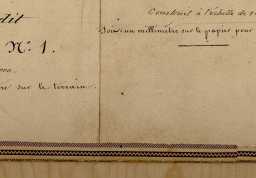 dit
N.º 1.
sur le terrain.
Construit à l'échelle de
Soit un millimètre sur le papier pour